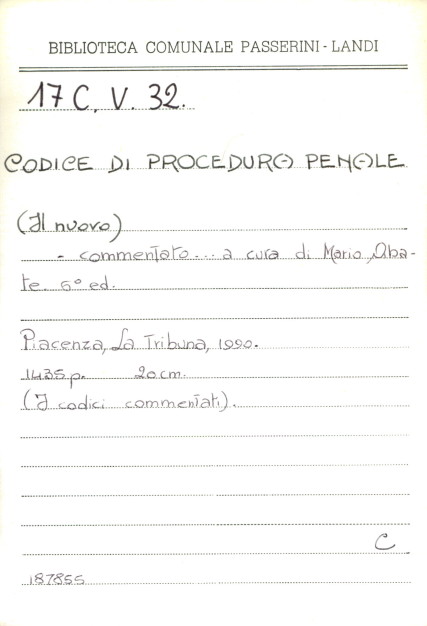 BIBLIOTECA COMUNALE PASSERINI-LANDI
17 C. V. 32.
CODICE DI PROCEDURA PENALE
(Il nuovo)
- commentato... a cura di Mario Aba-
te. 6° ed.
Piacenza, La Tribuna, 1990.
1435 p. 20 cm.
(I codici commentati).
C
187855